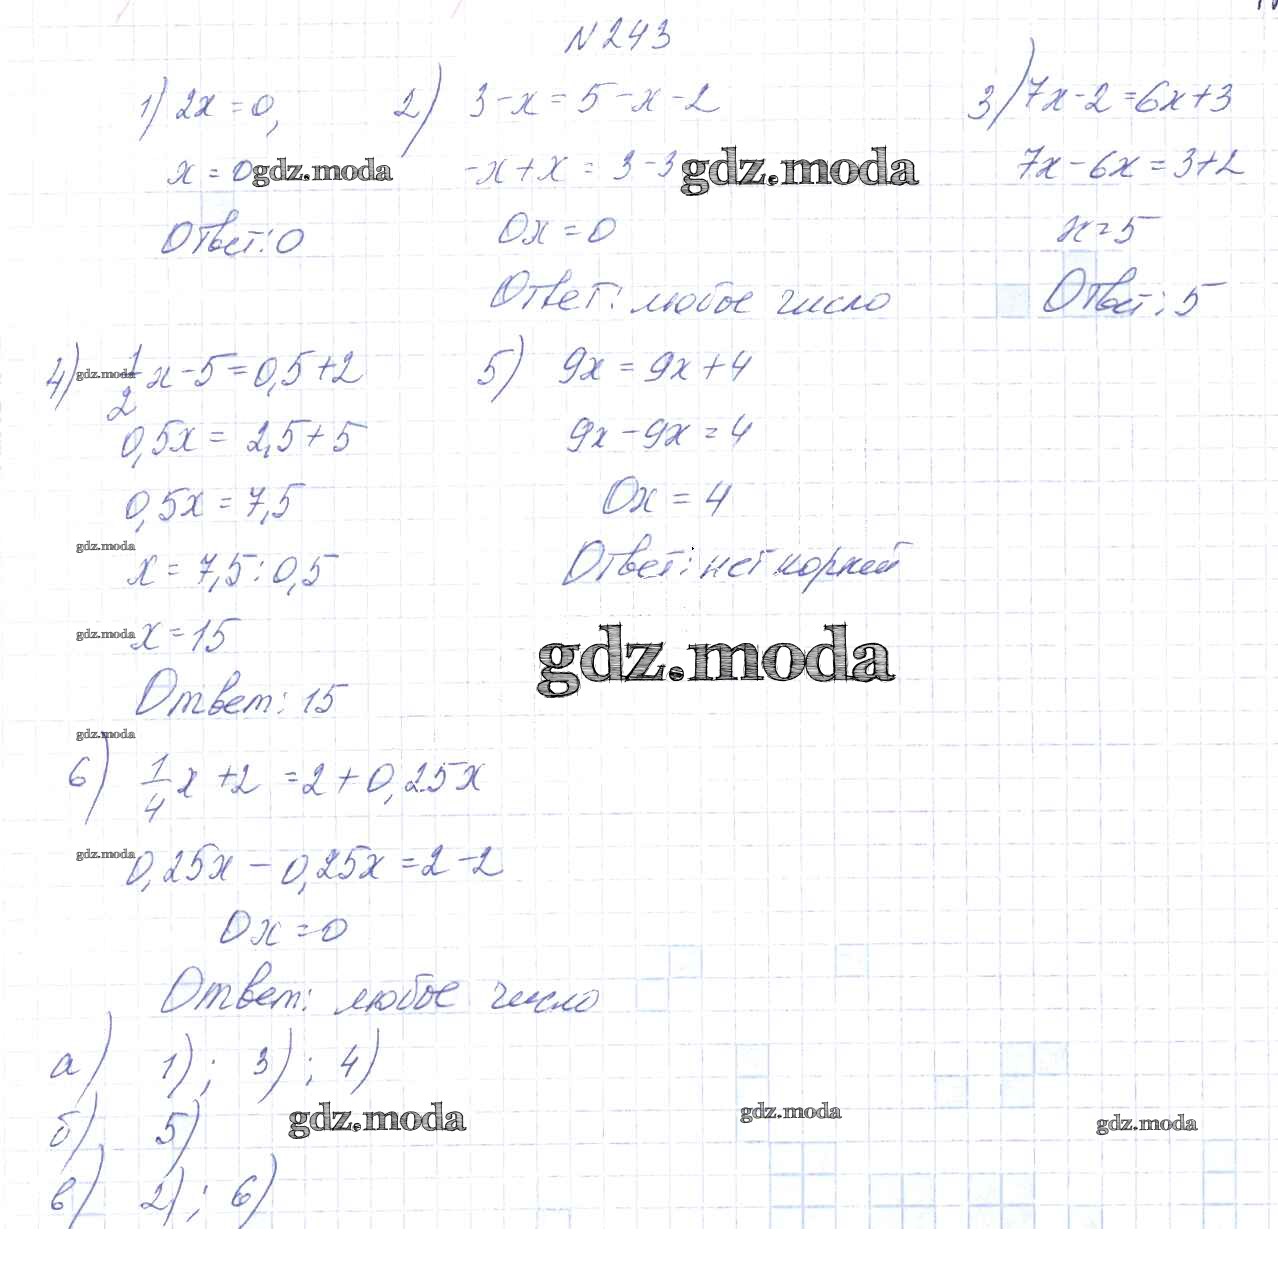 N 243
1) 2x = 0,
x = 0
Ответ: 0
2) 3 - x = 5 - x - 2
-x + x = 3 - 3
0x = 0
Ответ: любое число
3) 7x - 2 = 6x + 3
7x - 6x = 3 + 2
x = 5
Ответ: 5
4) 1/2 x - 5 = 0,5 + 2
0,5x = 2,5 + 5
0,5x = 7,5
x = 7,5 : 0,5
x = 15
Ответ: 15
5) 9x = 9x + 4
9x - 9x = 4
0x = 4
Ответ: нет корней
6) 1/4 x + 2 = 2 + 0,25x
0,25x - 0,25x = 2 - 2
0x = 0
Ответ: любое число
а) 1); 3); 4)
б) 5)
в) 2); 6)
gdz.moda
gdz.moda
gdz.moda
gdz.moda
gdz.moda
gdz.moda
gdz.moda
gdz.moda
gdz.moda
gdz.moda
gdz.moda